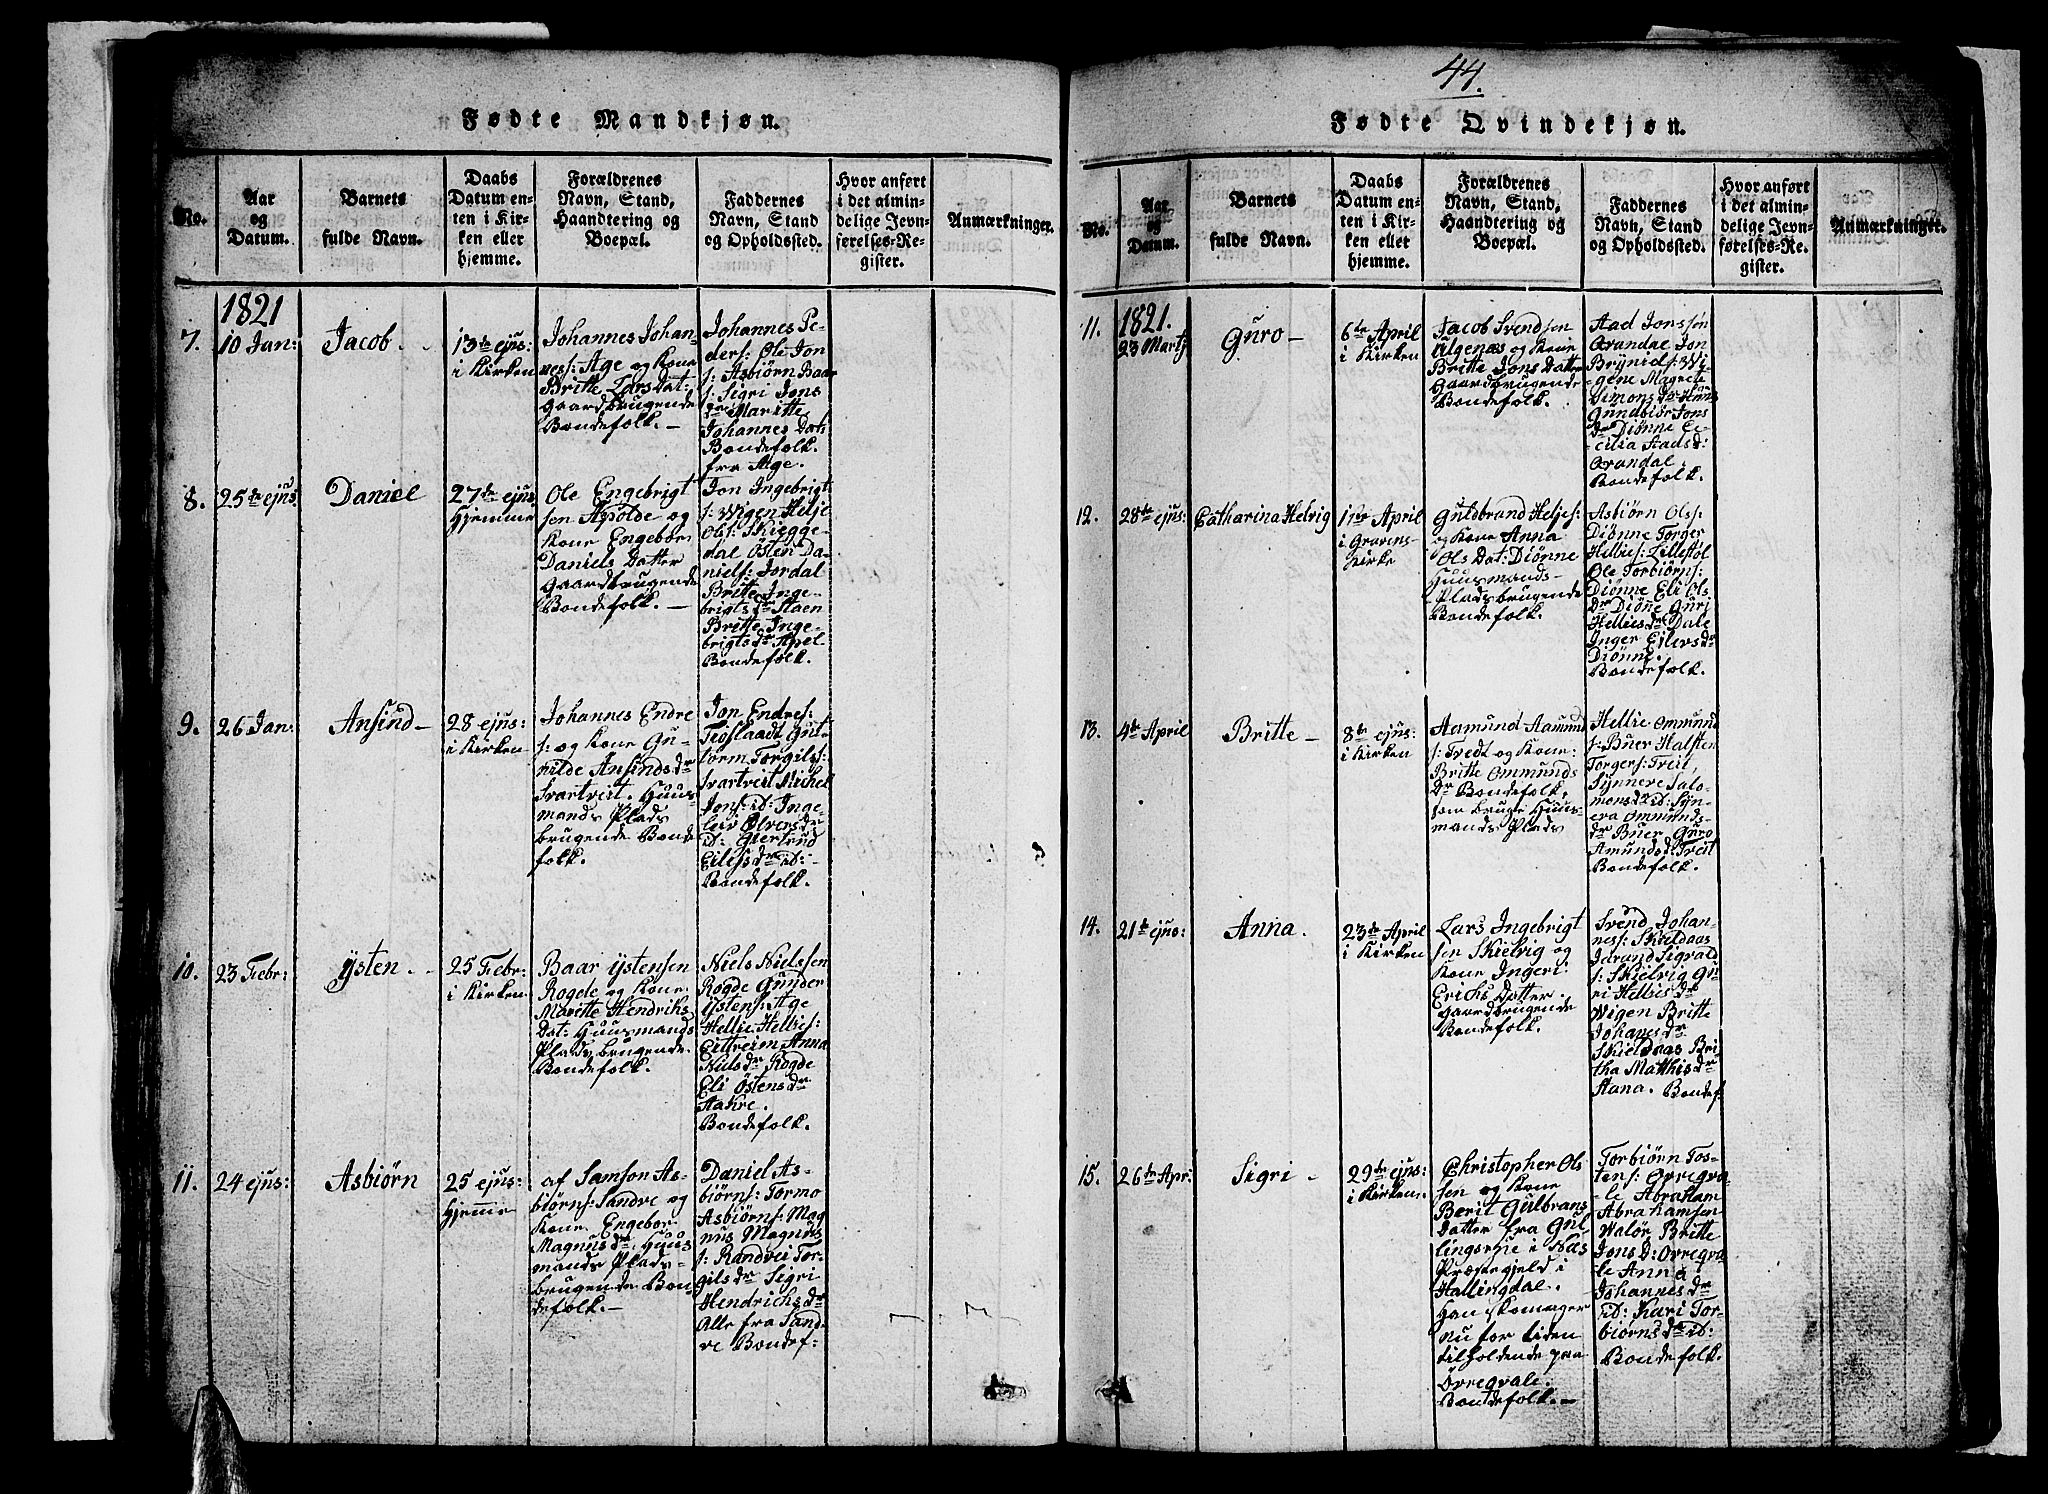 44.
Fødte Mandkjøn.
No.
Aar
og
Datum.
Barnets
fulde Navn.
Daabs
Datum en-
ten i Kir-
ken eller
hjemme.
Forældrenes
Navn, Stand,
Haandtering og
Boepæl.
Faddernes
Navn, Stand
og Opholdssted.
Hvor anført
i det almin-
delige Jevn-
førelses-Re-
gister.
Anmærkninger.
1821
7.
10 Jan:
Jacob.
13de ejus:
i Kirken
Johannes Johan-
nesf: Age og Kone
Britte Lars Dat:
Gaardbrugende
Bondefolk. —
Johannes Pe-
ders: Ole Jon
s: Asbiørn Baar
s: Sigri Jons
dr Maritte
Johannes Dat:
Bondefolk.
fra Age.
8.
25de ejus:
Daniel
27de ejus
hjemme
Ole Engebrigt
sen Apolde og
Kone Engebor
Daniels Datter
Gaardbrugende
Bondefolk. —
Jon Ingebrigt
s: Wigen Helje
Ols: Skiegge-
dal Østen Da-
niels: Jordal
Britte Inge-
brigts dr Staen
Britte Inge-
brigts dr Apel
Bondefolk.
9.
26 Jan:
Ansind —
28 ejus:
i Kirken
Johannes Endre
s: og Kone Gu-
nilde Ansinds dr
Svartveit. Huus-
mands Plads
brugende Bonde
folk.
Jon Endres:
Teoslaadt Gut-
torm Torgils:
Svartveit Michel
Jons: id: Inge-
leiv Olvers dr
id: Giertrud
Eilefs dr id: -
Bondefolk.
10.
23 Febr:
Ysten.
25 Febr:
i Kirken
Baar Ystensen
Rogde og Kone
Maritte Hendriks
Dat: Huusmands
Plads brugende
Bondefolk.
Niels Nielssen
Rogde Gunder
Ystens: Age
Hellie Hellies:
Eittreim Anna
Niels dr Rogde
Eli Østens dr
Aakre.
Bondefolk.
11.
24 ejus:
Asbiørn
25 ejus:
Hjemme
af Samson As-
biørns: Sandre og
Kone Engebor
Magnus dr. Huus
mands Plads-
brugende Bon-
defolk. —
Daniel As-
biørns: Tormo
Asbiørns: Mag
nus Magnus
s: Randvei Tor-
gils dr Sigri
Hendrichs dr
Alle fra Sand-
re Bondef:
Fødte Qvindekjøn.
No.
Aar
og
Datum.
Barnets
fulde Navn.
Daabs
Datum en-
ten i Kir-
ken eller
hjemme.
Forældrenes
Navn, Stand,
Haandtering og
Boepæl.
Faddernes
Navn, Stand
og Opholdssted.
Hvor anført
i det almin-
delige Jevn-
førelses-Re-
gister.
Anmærkninger.
1821.
11.
23 Martj
Guro —
6te April
i Kirken
Jacob Svendsen
Algenæs og Kone
Britte Jons Datter
Gaardbrugende
Bondefolk.
Aad Jonssøn
Aarandal Jon
Bryniels: Wi-
gene Magrete
Simons dr ibid
Gundbiør Jons
dr Diønne Ce-
cilia Aads d:
Arandal.
Bondefolk.
12.
28de ejus:
Catharina Helvig
1ste April
i Gravens-
kirke
Guldbrand Heljes:
og Kone Anna
Ols Dat: Diønne
Huusmands-
Pladsbrugende
Bondefolk.
Asbiørn Ols:
Diønne Torger
Hellies: Lillestøl
Ole Torbiørns:
Diønne Eli Ols
dr Diøne Guri
Hellies dr Dale
Inger Eilers dr
Diønne.
Bondefolk.
13.
4de April
Britte —
8de ejus:
i Kirken
Aamund Aamund
s: Tvedt og Kone:
Britte Ommunds
dr Bondefolk,
som bruge Huus-
mands Plads
Hellie Ommund
s: Buer Halsten
Torgers: Tveit,
Synnere Salo-
mons d id: Syn-
era Ommunds-
dr Buer Guro
Amunds d: Tveit
Bondefolk.
14.
21de ejus:
Anna.
23de April
i Kirken
Lars Ingebrigt
sen Skielvig og
Kone Ingeri
Erichs Datter.
Gaardbrugende
Bondefolk.
Svend Johan-
nesf: Skieldaas
Jarand Sigvald
s: Skielvig Gu-
ri Hellies dr
Wigen Britte
Johanes dr
Skieldaas Bri
tha Matthis dr
Stana. Bondef.
15.
26de Apr:
Sigri —
29de ejus:
i Kirken.
Christopher Ols
sen og Kone
Berit Gulbrans
Datter fra Gul
lingsrie i Næs
Præstegjeld i
Hallingdal.
Han skomager
nu for tiden
tilholdende paa
Orreqvale.
Bondefolk. —
Torbiørn Tos-
tens: Orreqva-
le Abraham
Abrahamsen
Walør Britte
Jons D: Orreqva
le Anna
Johannes dr
id: Kari Tor-
biørns dr ib:
Bondefolk.